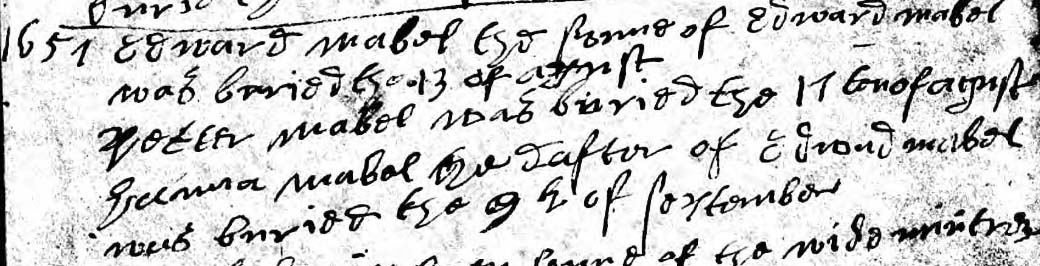 buried
1651 Edward mabel the sonne of Edward mabel
was buried the 13 of agust
petter mabel was buried the 17 of agust
hanna mabel the dafter of Edward mabel
was buried the 9 th of september
sonne of the wide